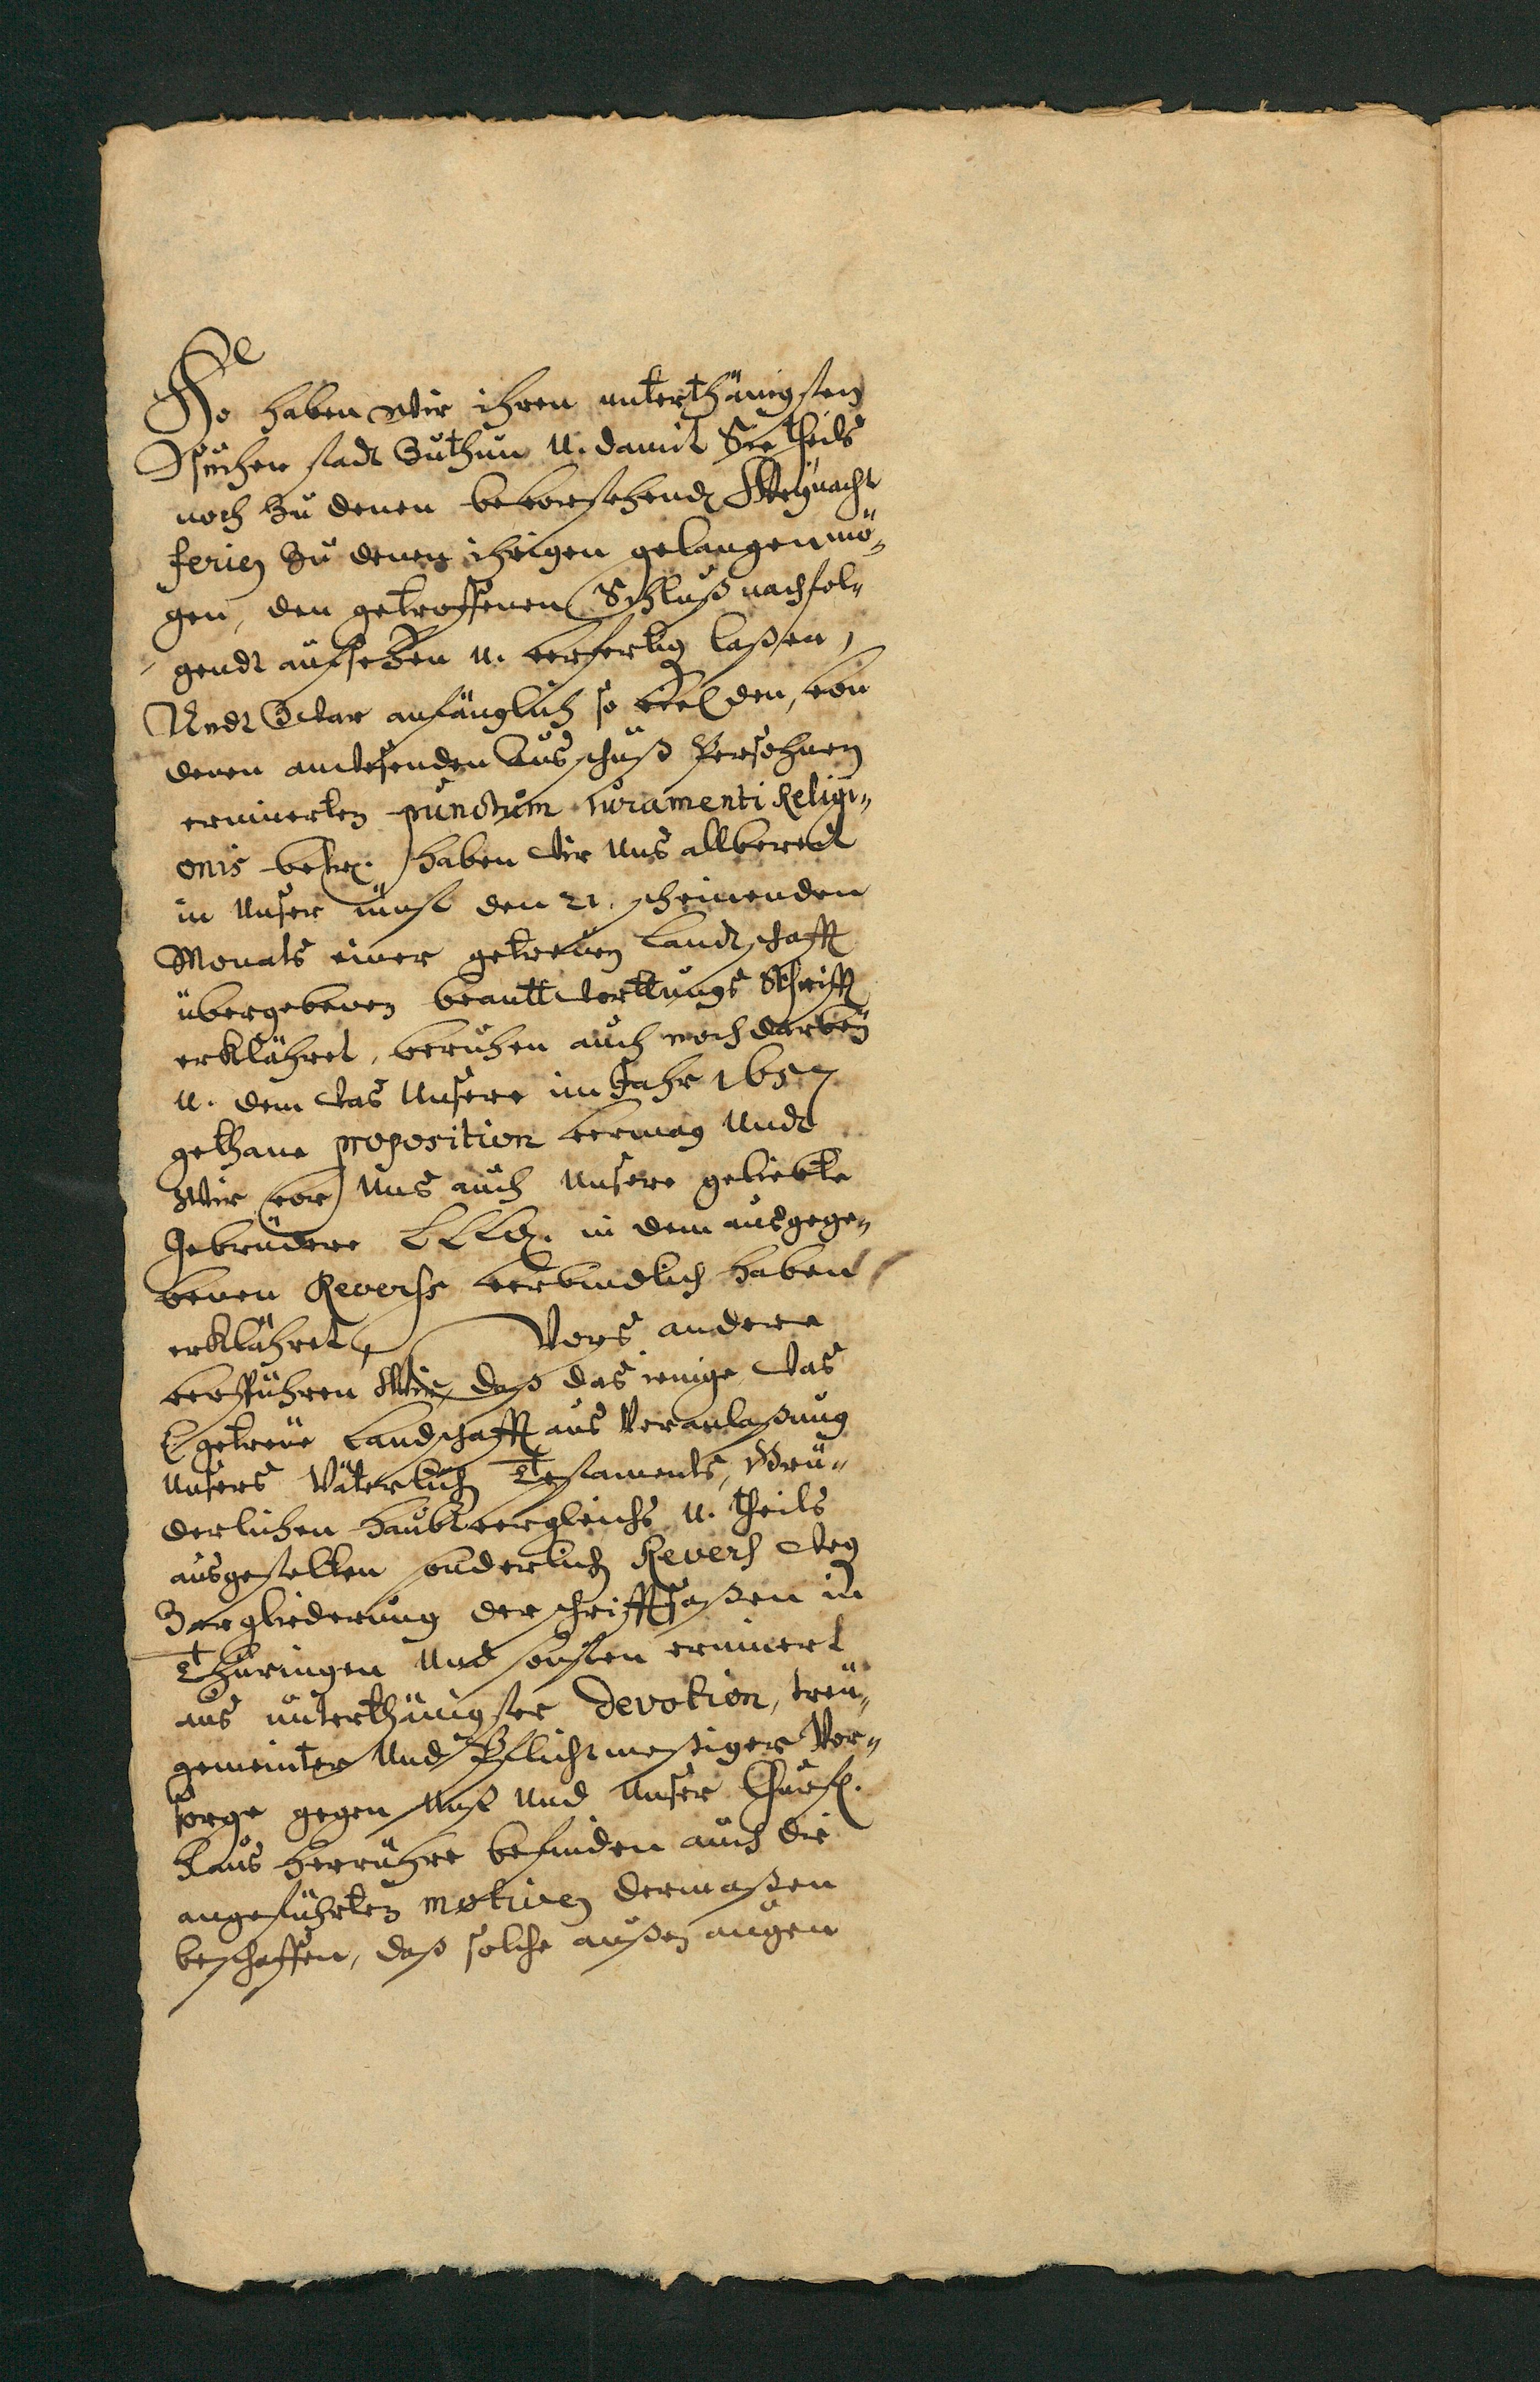 So haben wir ihren unterthänigsten
suchen stadt zuthun u. damit Sie theils
noch zu denen bevorstehendn Weynacht
ferien zu denen ihrigen gelangen mö-
gen, den getroffenen Schluß nachfol-
gendt aufsetzen u. verfertig laßen,
Undt zwar anfänglich so viel den, von
denen anwesenden Ausschuß Persohnen
erinnerten punctum iuramenti Religi-
onis betr. haben wir Uns allbereit
in Unser unß den 21. scheinenden
Monats einer getreuen Landschafft
übergebenen beanttwortungs Schrifft
erklähret, beruhen auch noch darbey
u. dem was Unsere im Jahr 1657
gethane proposition vermag Undt
Wir vor Uns auch Unsere geliebte
Gebrüdere LLLd. in dem ausgege-
benen Reverse verbindlich haben
erklähret, Vors andere
verspühren Wir, daß das ienige was
E. getreue Landschafft aus Veranlaßung
Unsers Väterlich Testaments, Brü-
derlichen haubtvergleichs u. theils
ausgestelten sonderlich Revers weg
Zergliederung der schrifftsaßen in
Thüringen Und sonsten erinnert
aus unterthänigster Devotion, treu-
gemeinter Und Pflichtmeßiger Vor-
sorge gegen Unß Und Unser Churf.
Haus herrühre befinden auch die
angeführten motiven dermaßen
beschaffen, daß solche außen augen